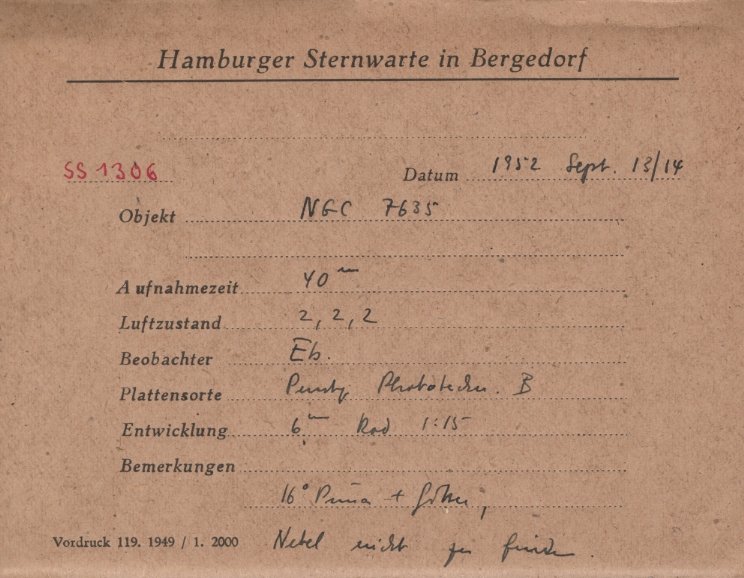 Hamburger Sternwarte in Bergedorf
SS 1306
Datum 1952 Sept. 13/14
Objekt NGC 7635
Aufnahmezeit 40 m
Luftzustand 2, 2, 2
Beobachter Eb.
Plattensorte B
Entwicklung 6 m Rod 1:15
Bemerkungen
16°
Vordruck 119. 1949 / 1. 2000 Nebel nicht zu finden.